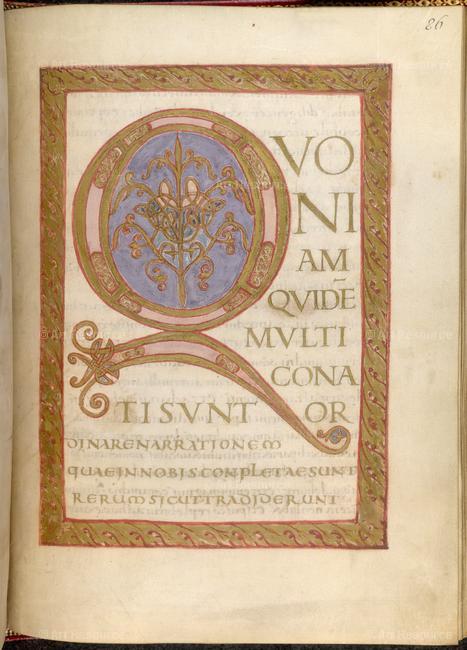 86
QVO
NI
AM
QVIDE̅
MVLTI
CONA
TISVNT OR
DINARENARRATIONEM
QUAEINNOBISCONPLETAESUNT
RERUMSICUTTRADIDERUNT
Art Resource